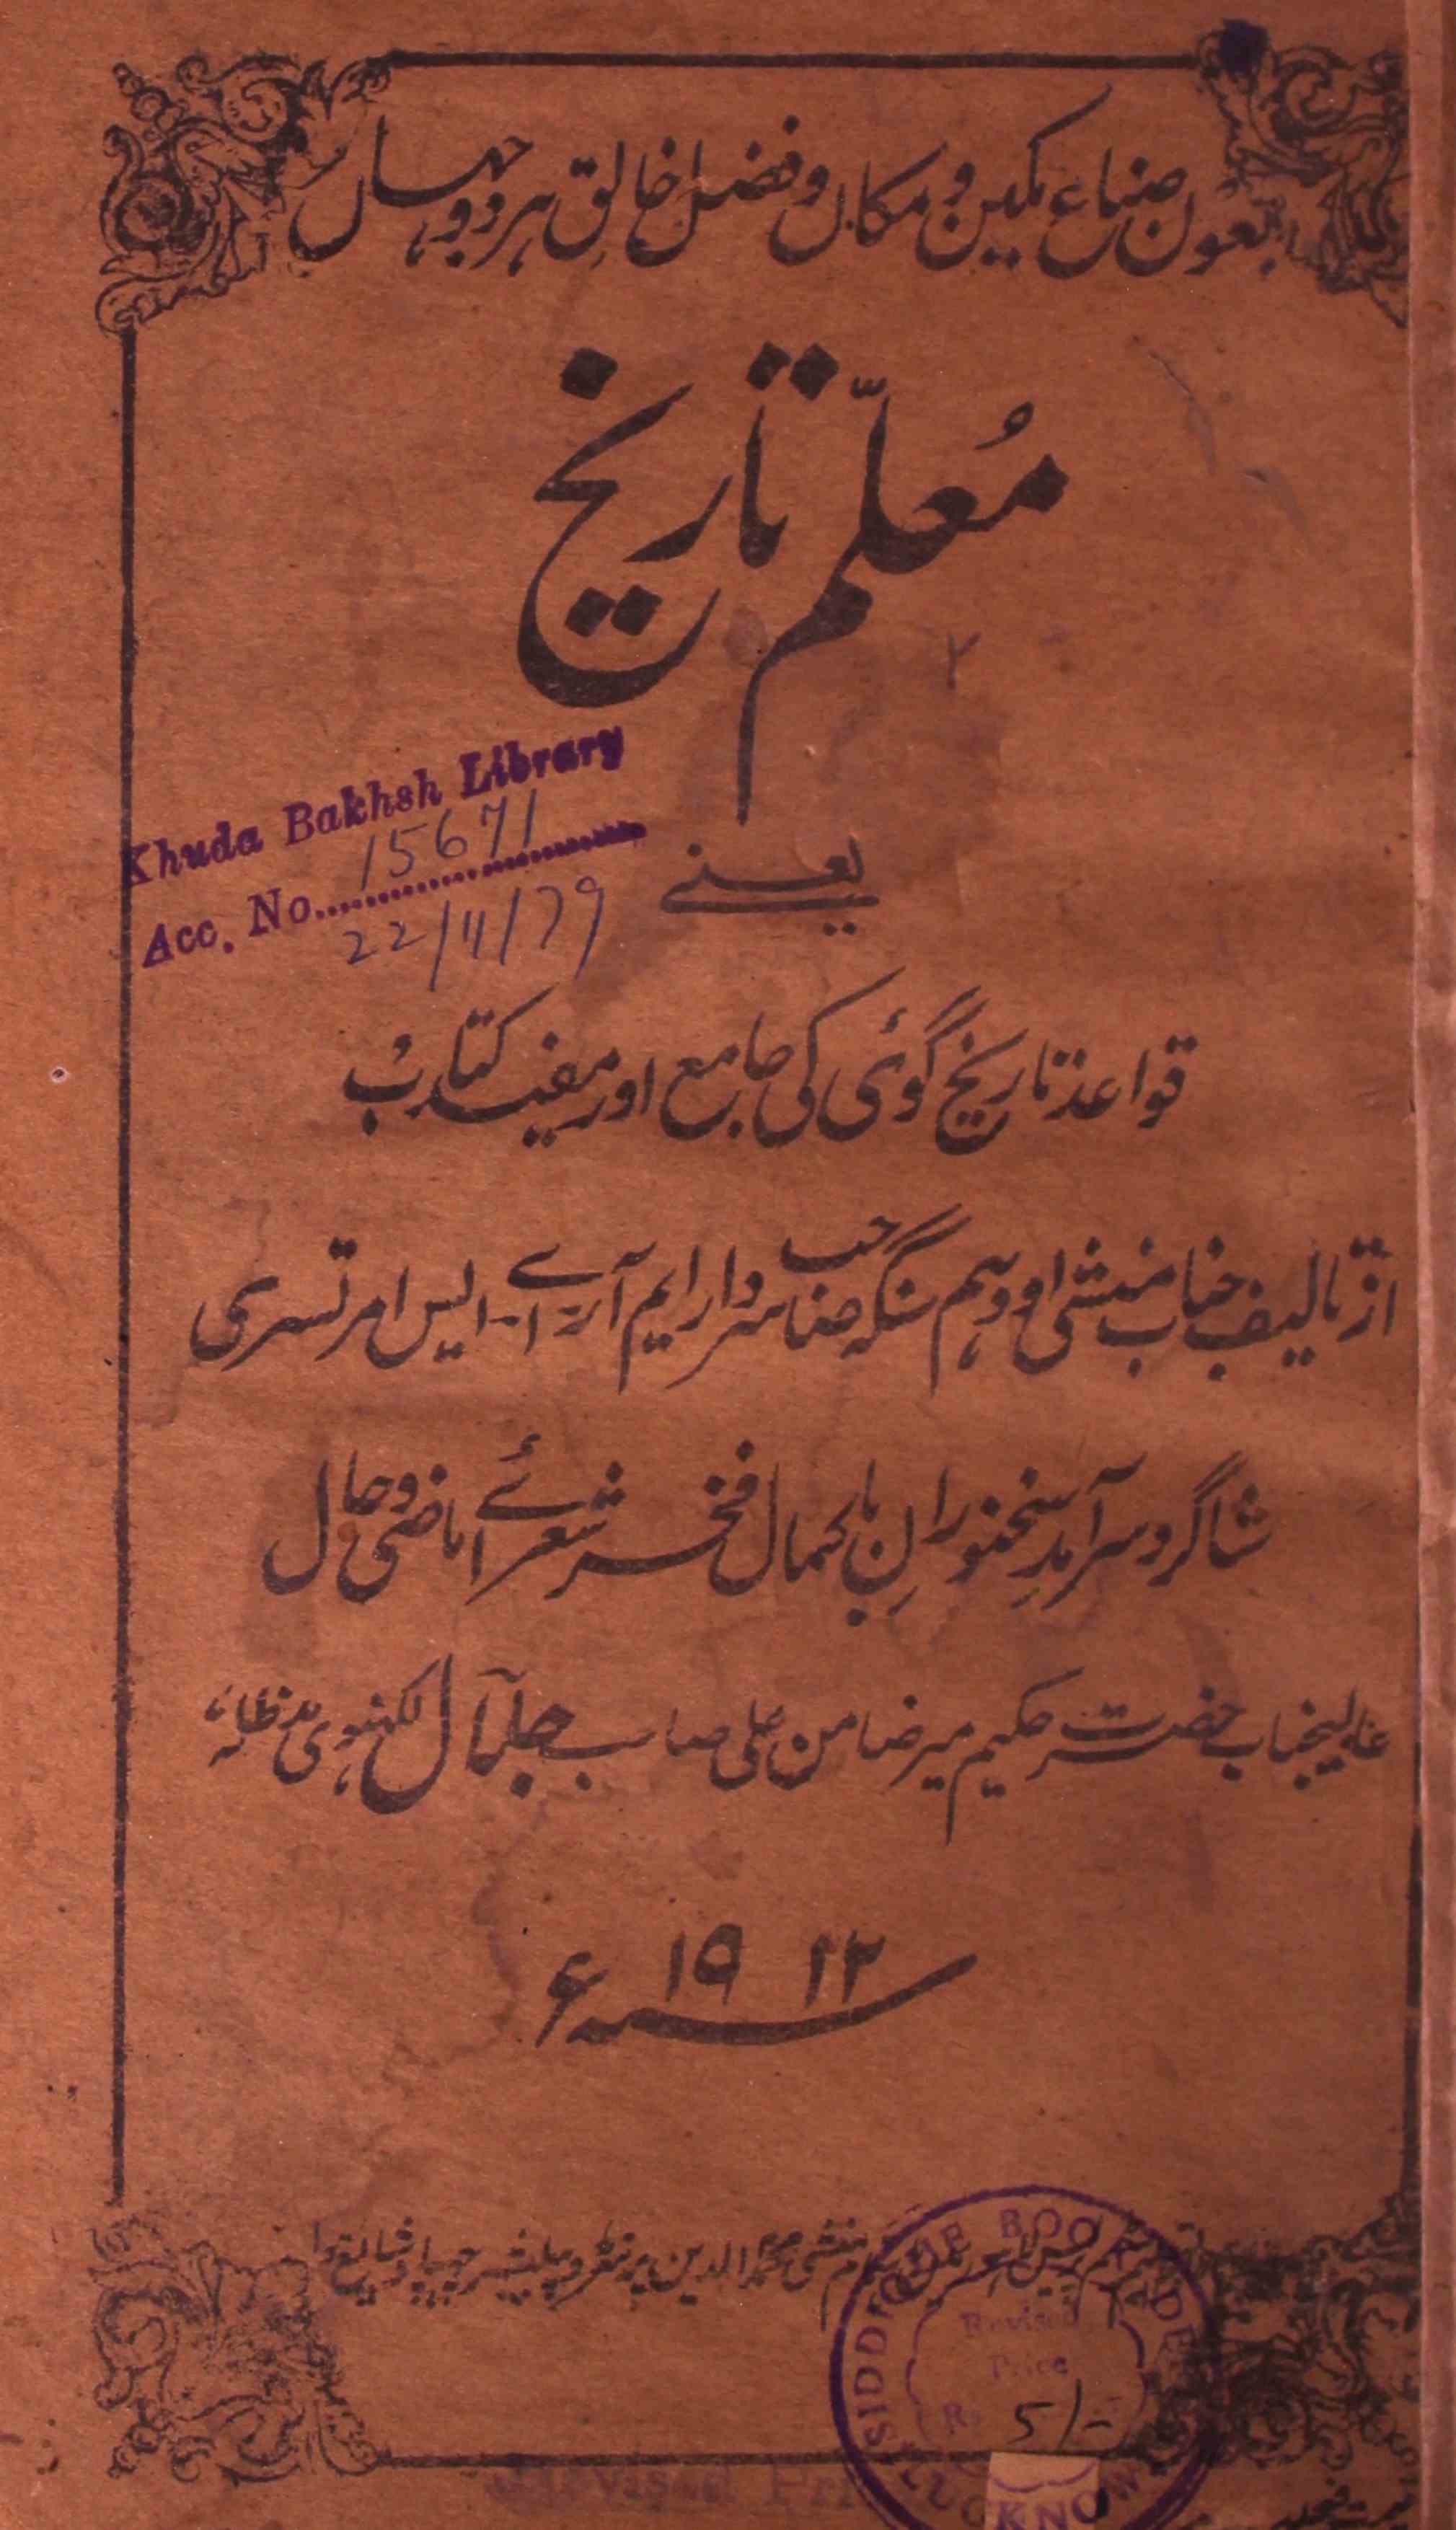 بعون صناع مکین و مکاں و فضل خالق ہر دو جہاں
مُعلّم تاریخ
Khuda Bakhsh Library
Acc. No. 15671
22/11/79
یعنے
قواعد تاریخ گوئی کی جامع اور مفید کتاب
از تالیف جناب منشی اودہم سنگہ صاحب سردار ایم آر اے ایس امرتسری
شاگرد سرآمدِ سخنورانِ باکمال فخر شعرائے ماضی و حال
عالیجناب حضرت حکیم میر ضامن علی صاحب جلال لکہنوی مدظلہ
۱۹۱۲ء
منشی محمد الدین پرنٹر و پبلیشر چھپا و شایع ہوا
SIDDIQUE BOOK DE
LUCKNOW
Revised
Price
Rs 5/-